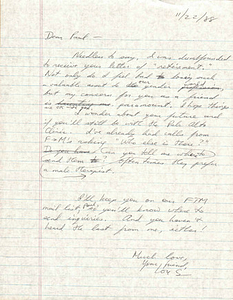 11/20/88
Dear Paul –
Needless to say, I was dumbfounded
to receive your letter of "retirement."
Not only do I feel bad to losing such
valuable asset to the gender
but my concern for you as a friend
is paramount. I hope things
I wonder about your future and
if you'll still be with the
Clinic. I've already had calls from
F→M's asking "Who else is there??"
can you tell me
send them to? Often times they prefer
a male therapist.
I'll keep you on our FTM
mail list, so you'll know where to
send inquiries. And you haven't
heard the last from me, either!
Much love,
Your friend,
Lou S.